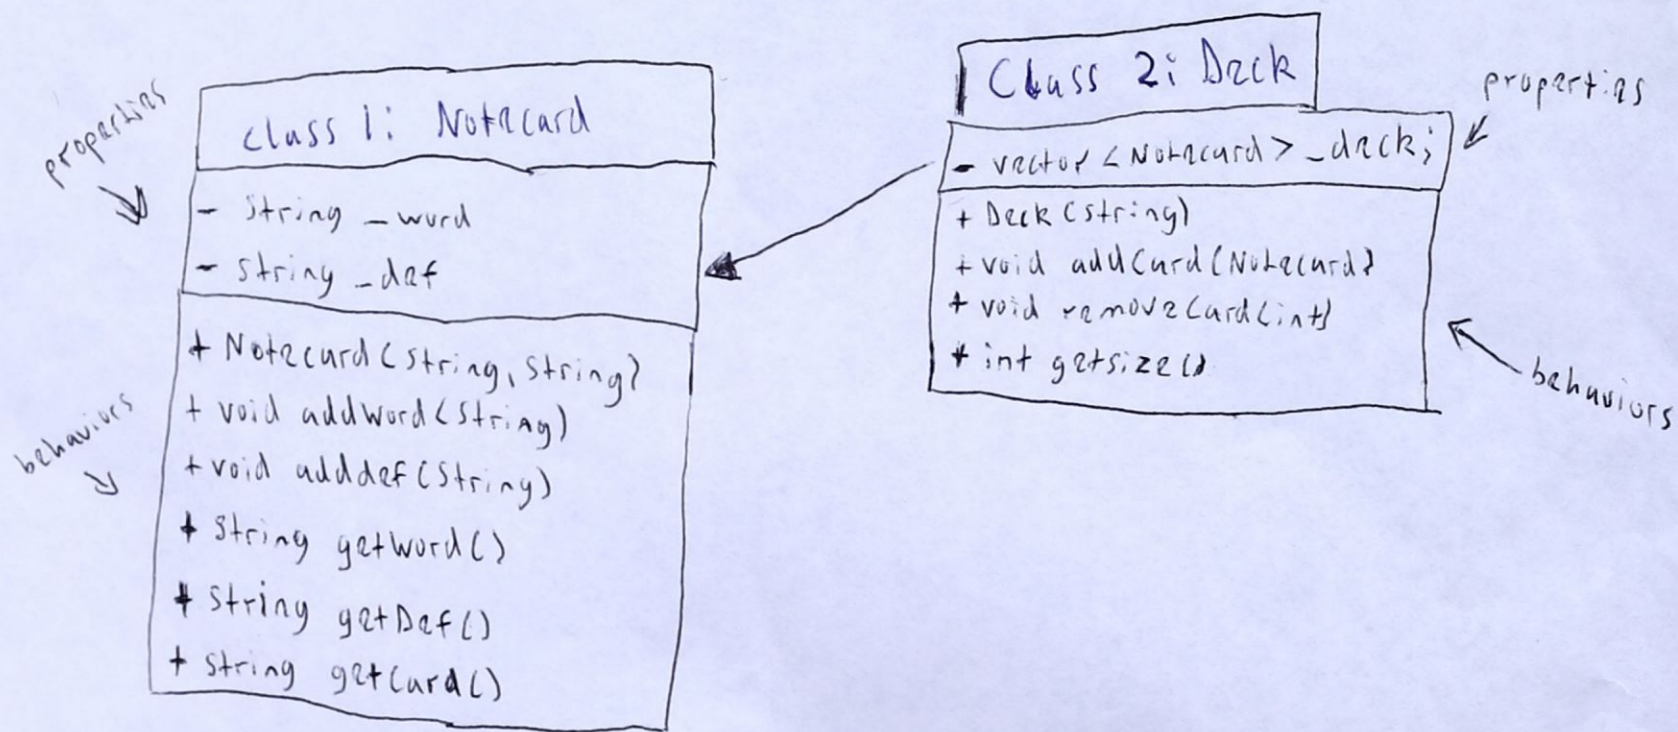 properties
class 1: Notecard
- string _word
- string _def
behaviors
+ Notecard(string, string)
+ void addWord(string)
+ void adddef(string)
+ string getWord()
+ string getDef()
+ string getCard()
Class 2: Deck
properties
- vector<Notecard> _deck;
+ Deck(string)
+ void addCard(Notecard)
+ void removeCard(int)
+ int getsize()
behaviors